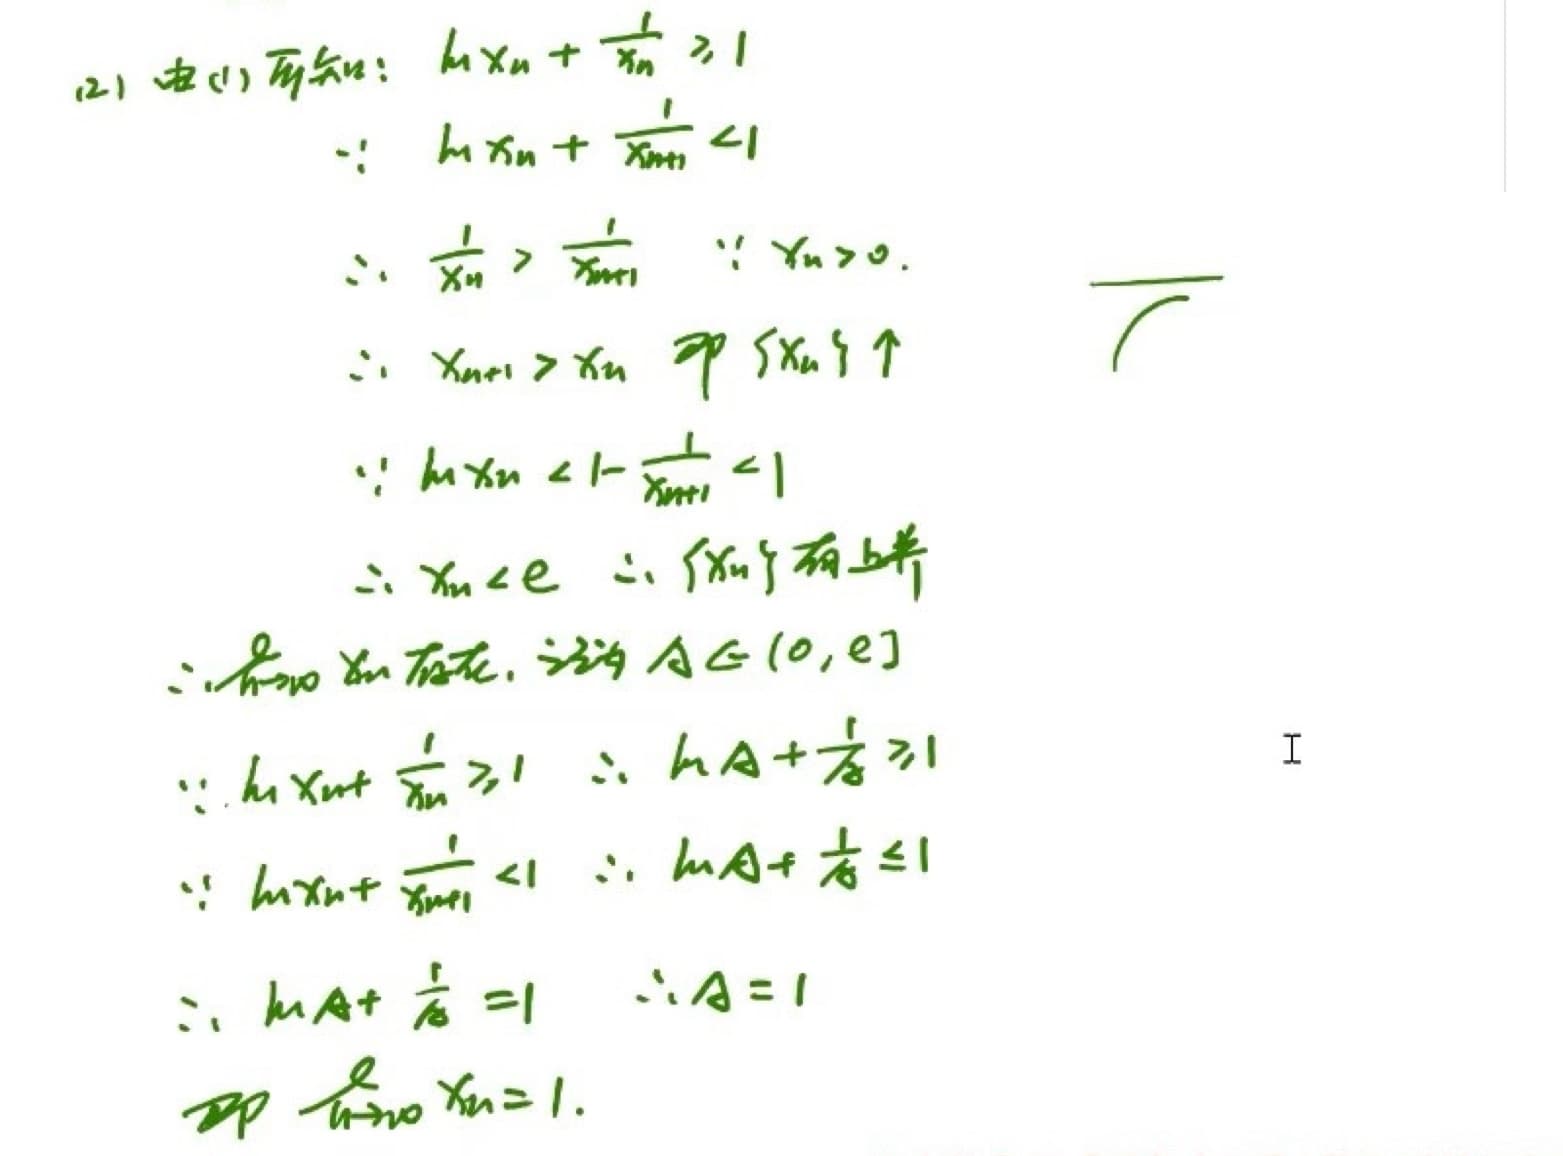 (2) 由(1)可知: ln xn + 1/xn ≥ 1
∵ ln xn + 1/xn+1 < 1
∴ 1/xn > 1/xn+1 ∵ xn > 0.
∴ xn+1 > xn 即 {xn} ↑
∵ ln xn < 1 - 1/xn+1 < 1
∴ xn < e ∴ {xn} 有上界
∴ lim n→∞ xn 存在, 设为 A ∈ (0, e]
∵ ln xn + 1/xn ≥ 1 ∴ ln A + 1/A ≥ 1
∵ ln xn + 1/xn+1 < 1 ∴ ln A + 1/A ≤ 1
∴ ln A + 1/A = 1 ∴ A = 1
即 lim n→∞ xn = 1.